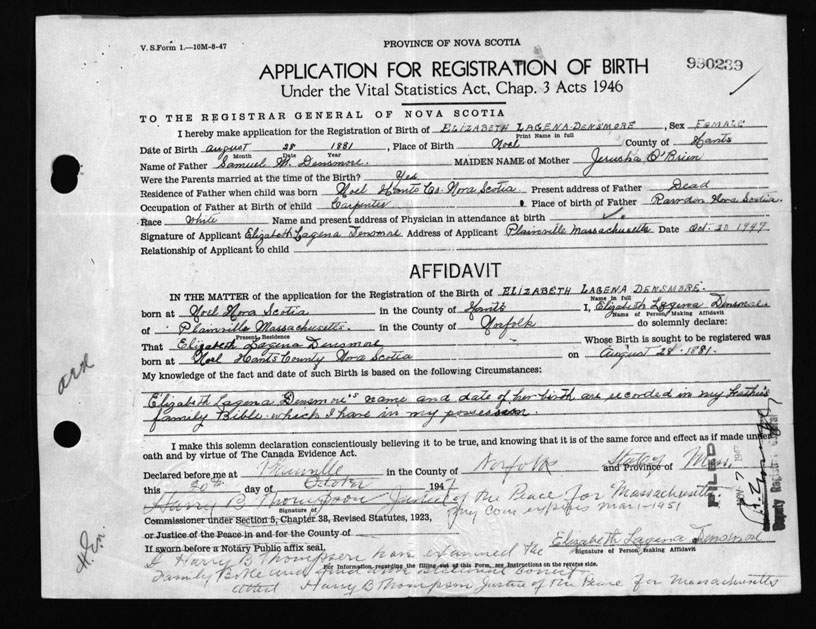 V. S. Form 1.—10M-8-47
PROVINCE OF NOVA SCOTIA
990289
APPLICATION FOR REGISTRATION OF BIRTH
Under the Vital Statistics Act, Chap. 3 Acts 1946
TO THE REGISTRAR GENERAL OF NOVA SCOTIA
I hereby make application for the Registration of Birth of ELIZABETH LAGENA DENSMORE, Sex FEMALE
Print Name in Full
Date of Birth august 28 1881, Place of Birth Noel County of Hants
Month Date Year
Name of Father Samuel W. Densmore. MAIDEN NAME of Mother Jerusha O'Brien
Were the Parents married at the time of the Birth? Yes
Residence of Father when child was born Noel Hants Co. Nova Scotia Present address of Father Dead
Occupation of Father at Birth of child Carpenter Place of birth of Father Rawdon Nova Scotia.
Race White Name and present address of Physician in attendance at birth
Signature of Applicant Elizabeth Lagena Densmore Address of Applicant Plainville Massachusetts Date Oct. 20 1947
Relationship of Applicant to child
AFFIDAVIT
IN THE MATTER of the application for the Registration of the Birth of ELIZABETH LAGENA DENSMORE.
Name in full
born at Noel Nova Scotia in the County of Hants I, Elizabeth Lagena Densmore
Name of Person Making Affidavit
of Plainville Massachusetts. in the County of Norfolk do solemnly declare:
Present Residence
That Elizabeth Lagena Densmore Whose Birth is sought to be registered was
born at Noel Hants County Nova Scotia on August 28-1881.
My knowledge of the fact and date of such Birth is based on the following Circumstances:
Elizabeth Lagena Densmore's name and date of her birth are recorded in my father's
family Bible which I have in my possession.
I make this solemn declaration conscientiously believing it to be true, and knowing that it is of the same force and effect as if made under
oath and by virtue of The Canada Evidence Act.
Declared before me at Plainville in the County of Norfolk and Province of State of Mass.
this 20th day of October 1947
Harry B Thompson Justice of the Peace for Massachusetts
Signature of
my Com expires Mar-1-1951
Commissioner under Section 5, Chapter 38, Revised Statutes, 1923,
or Justice of the Peace in and for the County of
Elizabeth Lagena Densmore
Signature of Person making Affidavit
If sworn before a Notary Public affix seal.
I Harry B Thompson have examined the
For Information, regarding the filling out of this Form, see Instructions on the reverse side.
Family Bible and find above statement correct
attest Harry B Thompson Justice of the Peace for Massachusetts
FILED
NOV 7 1947
Deputy Registrar General